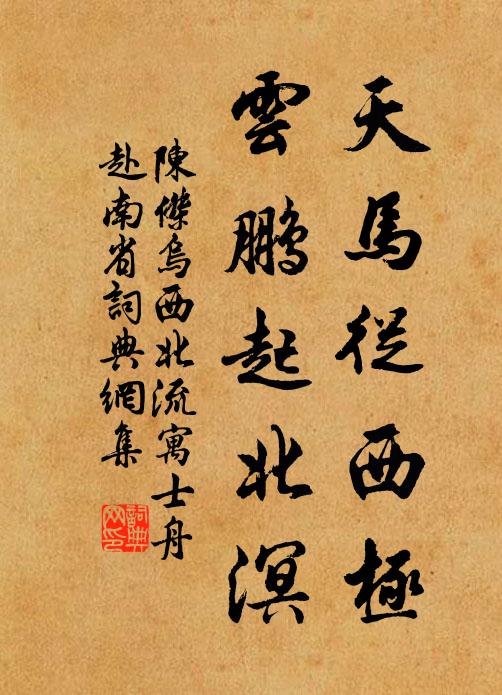 天馬從西極
雲鵬起北溟
陳傑烏西北流寓士舟
赴南省詞典網集
詞典網印